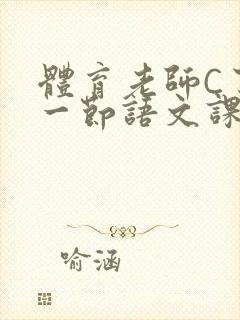 體育老師C
一節語文課
喻涵